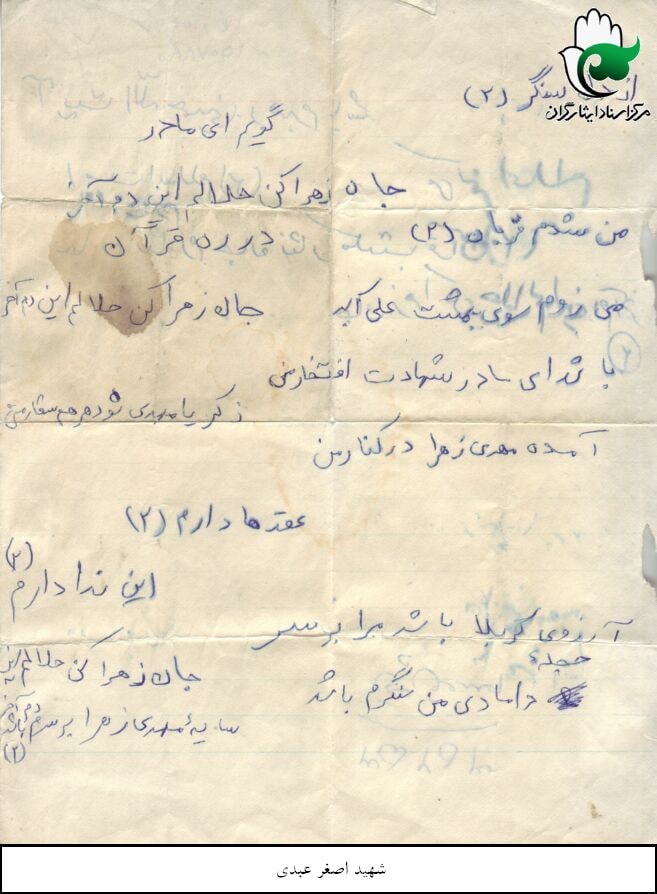 مرکز اسناد ایثارگران
سنگر (۲)
گویم ای مادر
جان زهرا کن حلالم این دم آخر
من شدم قربان (۲)
در ره قرآن
می روم سوی بهشت علی اکبر
جان زهرا کن حلالم این دم آخر
با شد ای مادر شهادت افتخار من
ذکر یا مهدی شود هر دم شعار من
آمده مهدی زهرا در کنار من
عقد ها دارم (۲)
این ندا دارم (۲)
آرزوی کربلا باشد مرا بر سر
جان زهرا کن حلالم این دم آخر
حجله دامادی من سنگرم باشد
سایهٔ مهدی زهرا بر سرم باشد (۲)
شهید اصغر عبدی